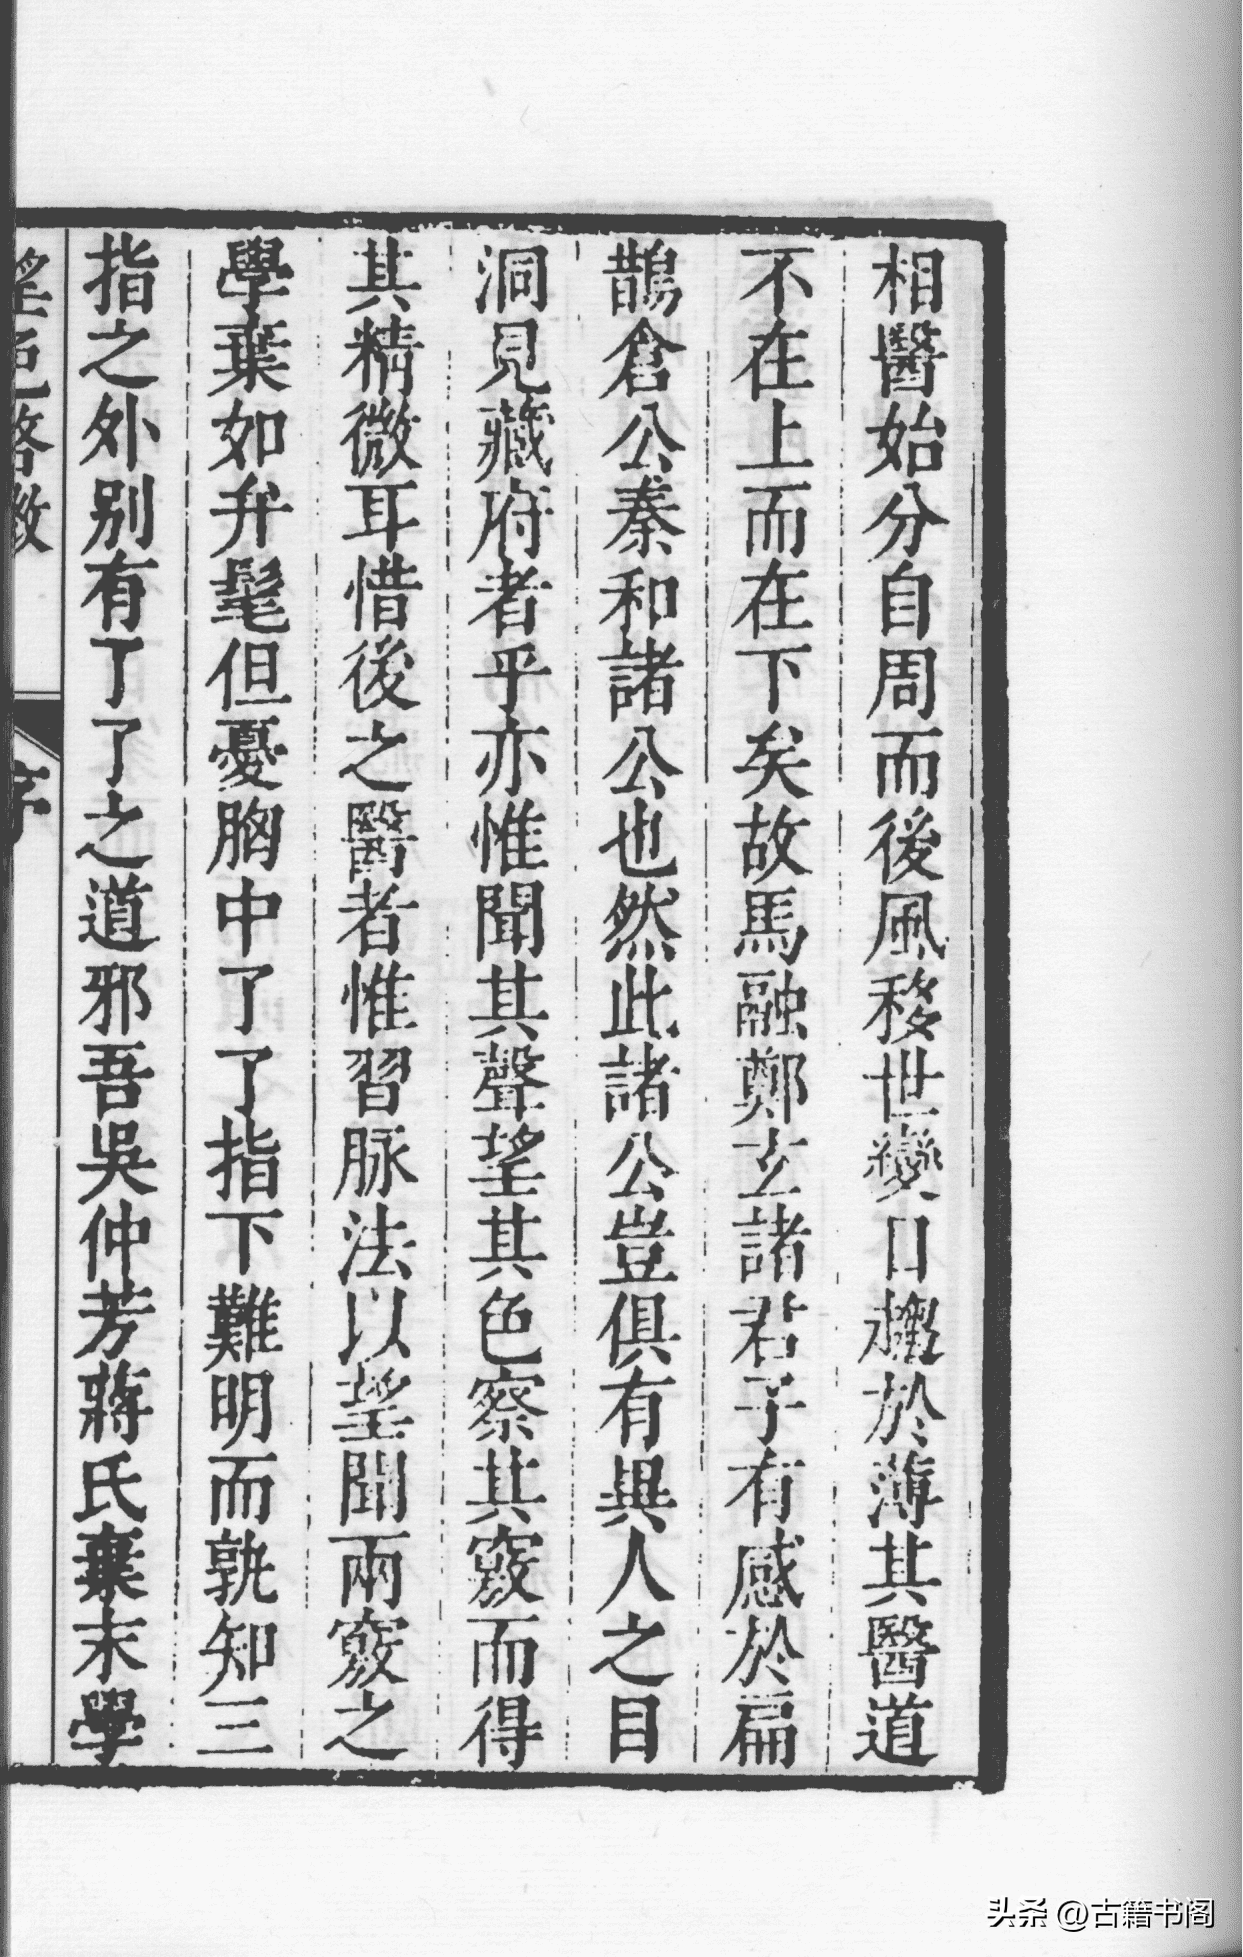 相醫始分自周而後風移世變日趨於薄其醫道
不在上而在下矣故馬融鄭玄諸君子有感於扁
鵲倉公秦和諸公也然此諸公豈俱有異人之目
洞見藏府者乎亦惟聞其聲望其色察其竅而得
其精微耳惜後之醫者惟習脉法以望聞兩竅之
學棄如弁髦但憂胸中了了指下難明而孰知三
指之外別有了了之道邪吾吳仲芳蔣氏棄末學
望色啓微
序
头条 @古籍书阁